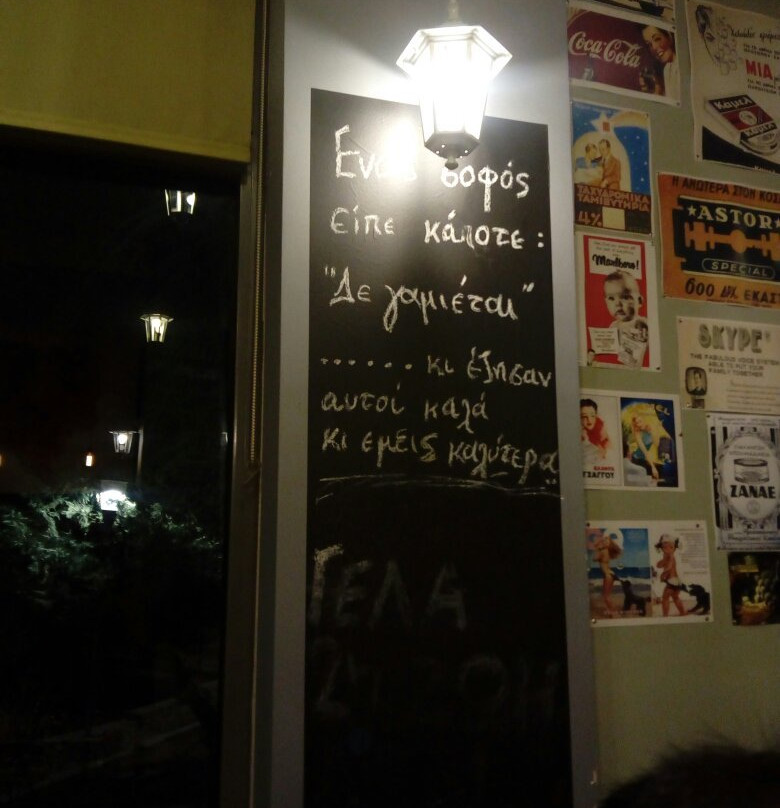 Ένας σοφός
είπε κάποτε:
"Δε γαμιέται"
...... κι έζησαν
αυτοί καλά
κι εμείς καλύτερα
ΓΕΛΑ
ΖΩΗ
Coca-Cola
ΤΑΧΥΔΡΟΜΙΚΑ
ΤΑΜΙΕΥΤΗΡΙΑ
4%
Marlboro!
ΜΙΑ
Καμελ
Καμελ
Η ΑΝΩΤΕΡΑ ΣΤΟΝ
★ASTOR
SPECIAL
600 ΔΡΧ.
SKYPE
THE FABULOUS VOICE SYSTEM
ABLE TO PUT YOUR
FAMILY TOGETHER
ΖΑΝΑΕ